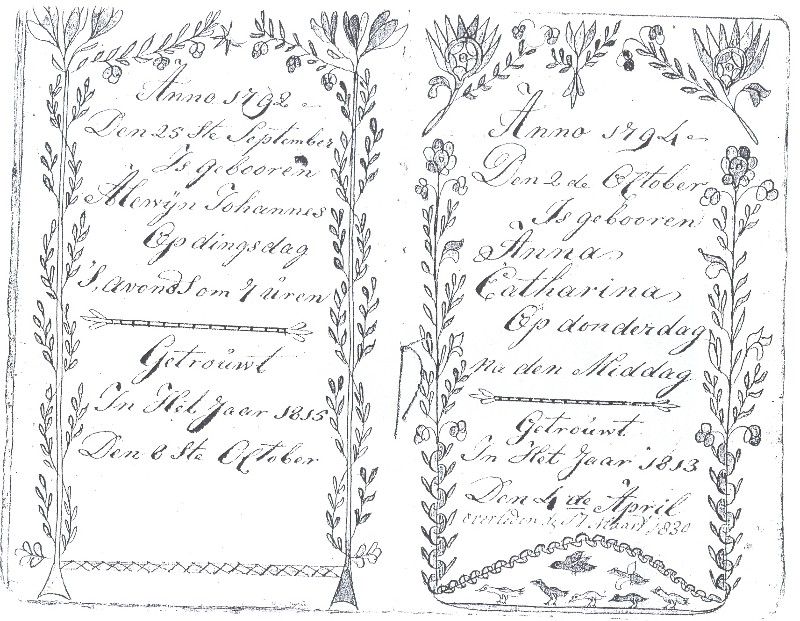 Anno 1792
Den 25 Ste September
Is gebooren
Alewÿn Johannes
Op dingsdag
'S, avonds om 7 üren
Getroüwt
In Het Jaar 1815
Den 8 Ste October
Anno 1794
Den 2 de October
Is gebooren
Anna
Catharina
Op donderdag
na den Middag
Getroüwt
In Het Jaar 1813
Den 4 de April
overleden 17 Maart 1830